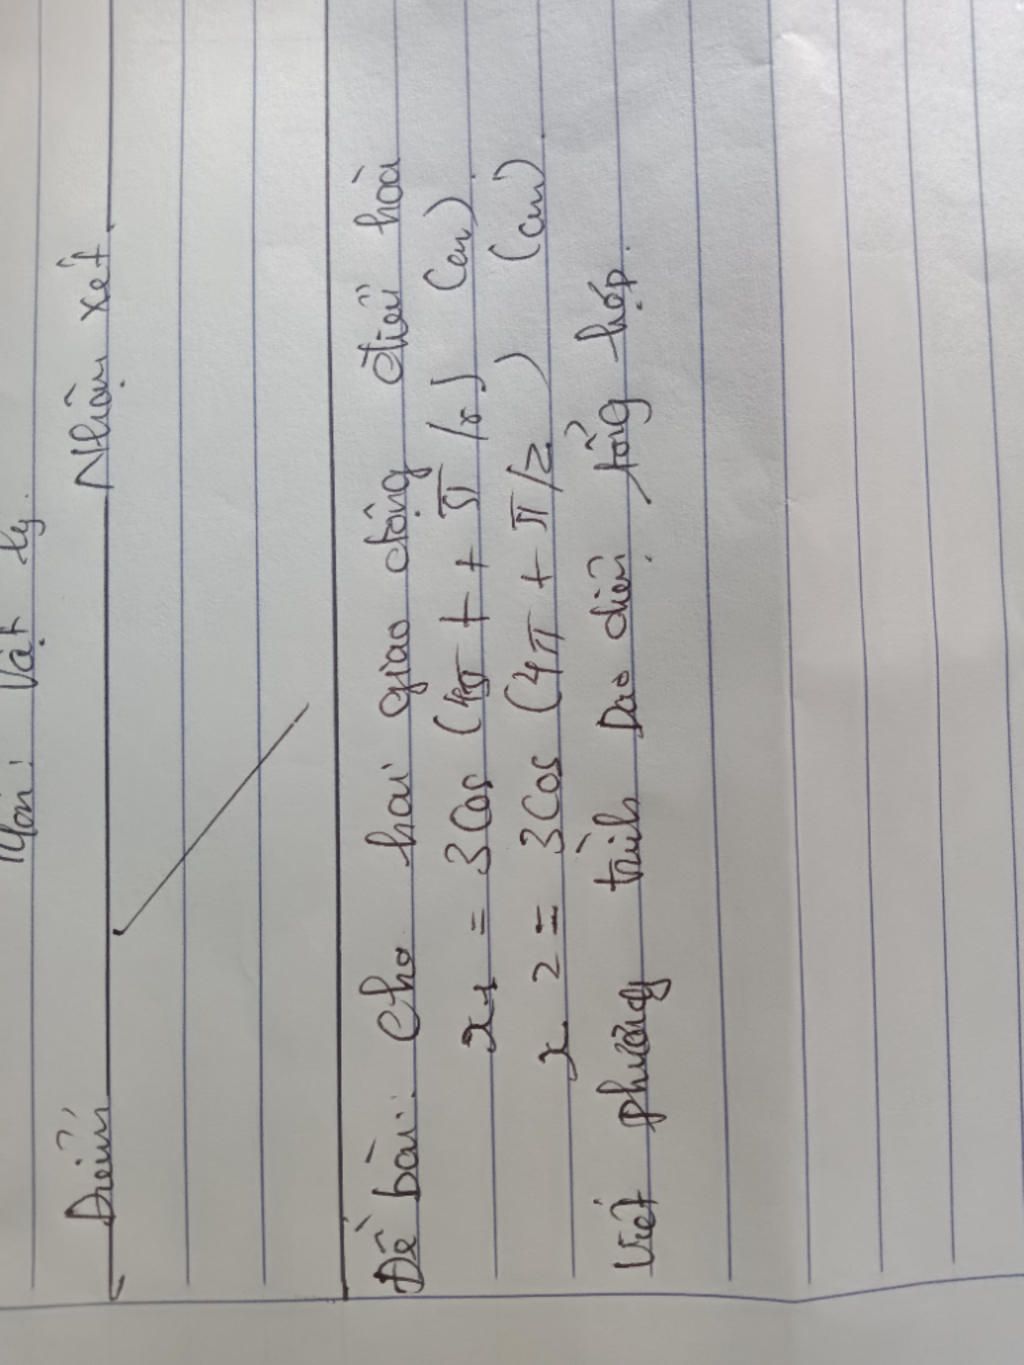 Môn: Vật lý.
Điểm Nhận xét
Đề bài: Cho hai giao động điều hòa
x1 = 3Cos (4π t + π / ) (cm)
x2 = 3Cos (4π + π/2 ) (cm)
Viết phương trình Dao điển tổng hợp.